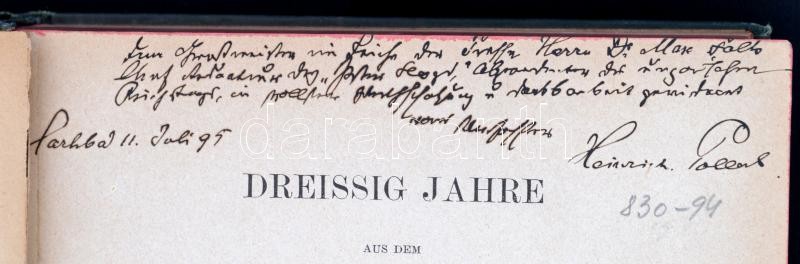 Dem Großmeister im Reiche der Presse Herrn Dr Max Falk
Chef Redacteur des "Pester Lloyd", Abgeordneter des ungarischen
Reichstags, in vollster Werthschätzung u Dankbarkeit gewidmet
vom Verfasser
Carlsbad 11. Juli 95
Heinrich Pollak
DREISSIG JAHRE
830-94
AUS DEM
darabanth